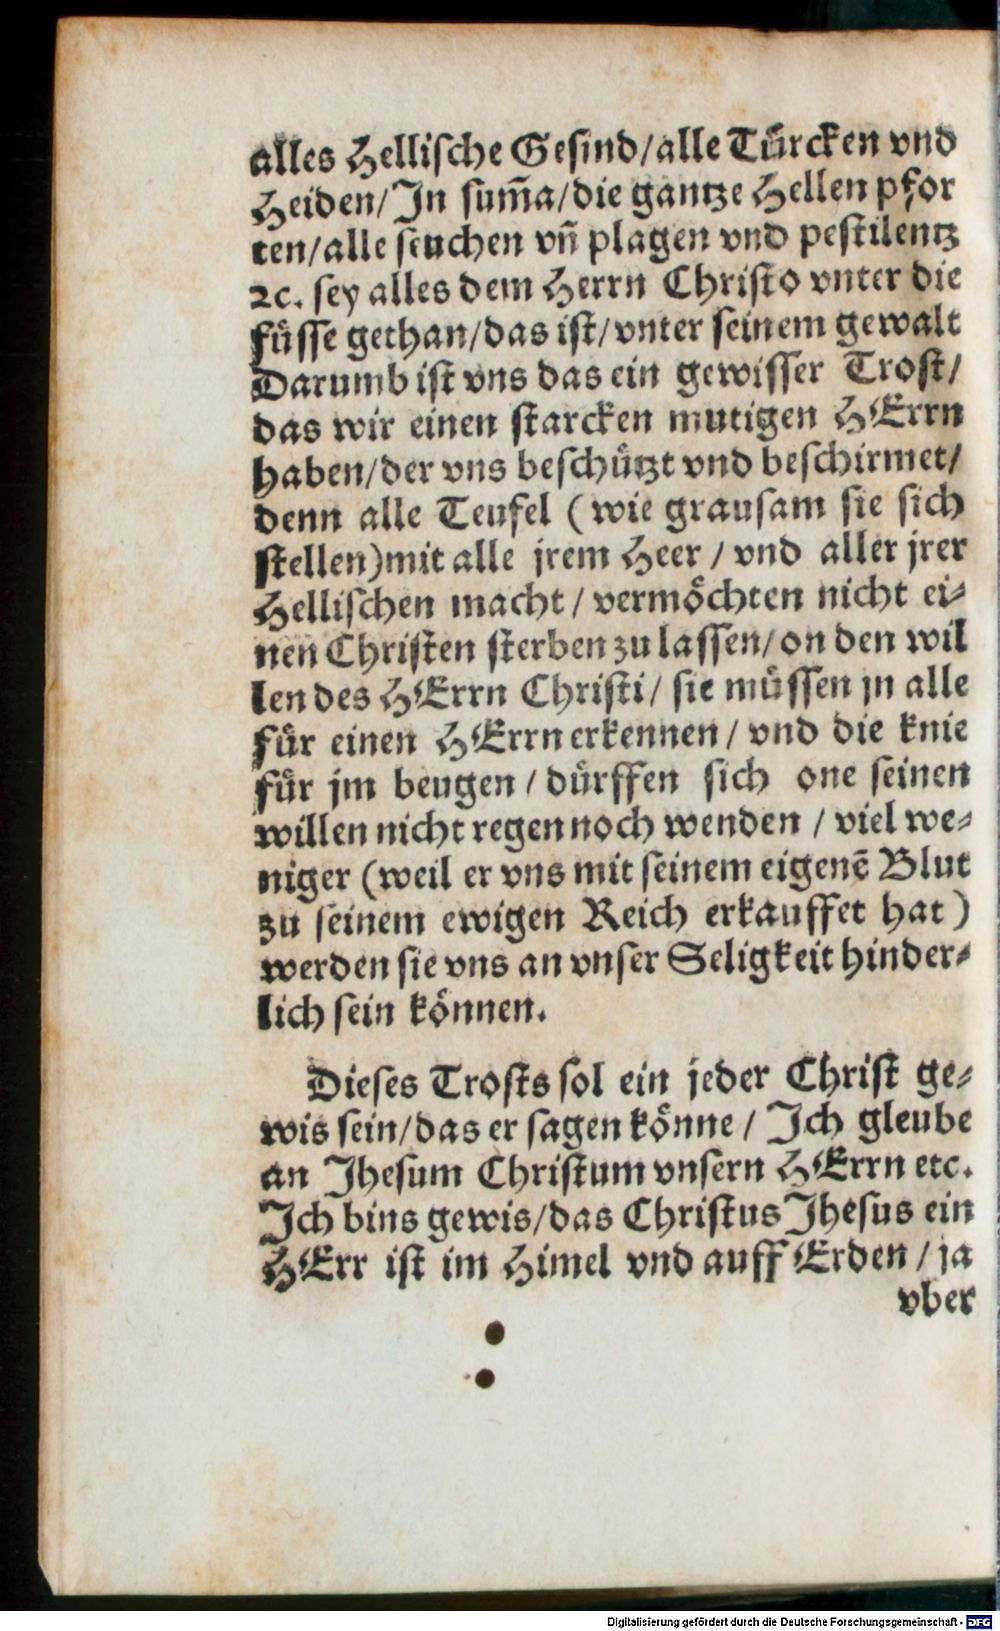 alles Hellische Gesind/alle Türcken vnd
Heiden/In sum̃a/die gantze Hellen pfor
ten/alle seuchen vñ plagen vnd pestilentz
ꝛc. sey alles dem Herrn Christo vnter die
füsse gethan/das ist/vnter seinem gewalt
Darumb ist vns das ein gewisser Trost/
das wir einen starcken mutigen HErrn
haben/der vns beschützt vnd beschirmet/
denn alle Teufel (wie grausam sie sich
stellen)mit alle jrem Heer / vnd aller jrer
Hellischen macht / vermöchten nicht ei-
nen Christen sterben zu lassen/on den wil
len des HErrn Christi / sie müssen jn alle
für einen HErrn erkennen / vnd die knie
für jm beugen / dürffen sich one seinen
willen nicht regen noch wenden / viel we-
niger (weil er vns mit seinem eigenẽ Blut
zu seinem ewigen Reich erkauffet hat)
werden sie vns an vnser Seligkeit hinder-
lich sein können.
Dieses Trosts sol ein jeder Christ ge-
wis sein/das er sagen könne / Ich gleube
an Jhesum Christum vnsern HErrn etc.
Ich bins gewis/das Christus Jhesus ein
HErr ist im Himel vnd auff Erden / ja
vber
Digitalisierung gefördert durch die Deutsche Forschungsgemeinschaft - DFG